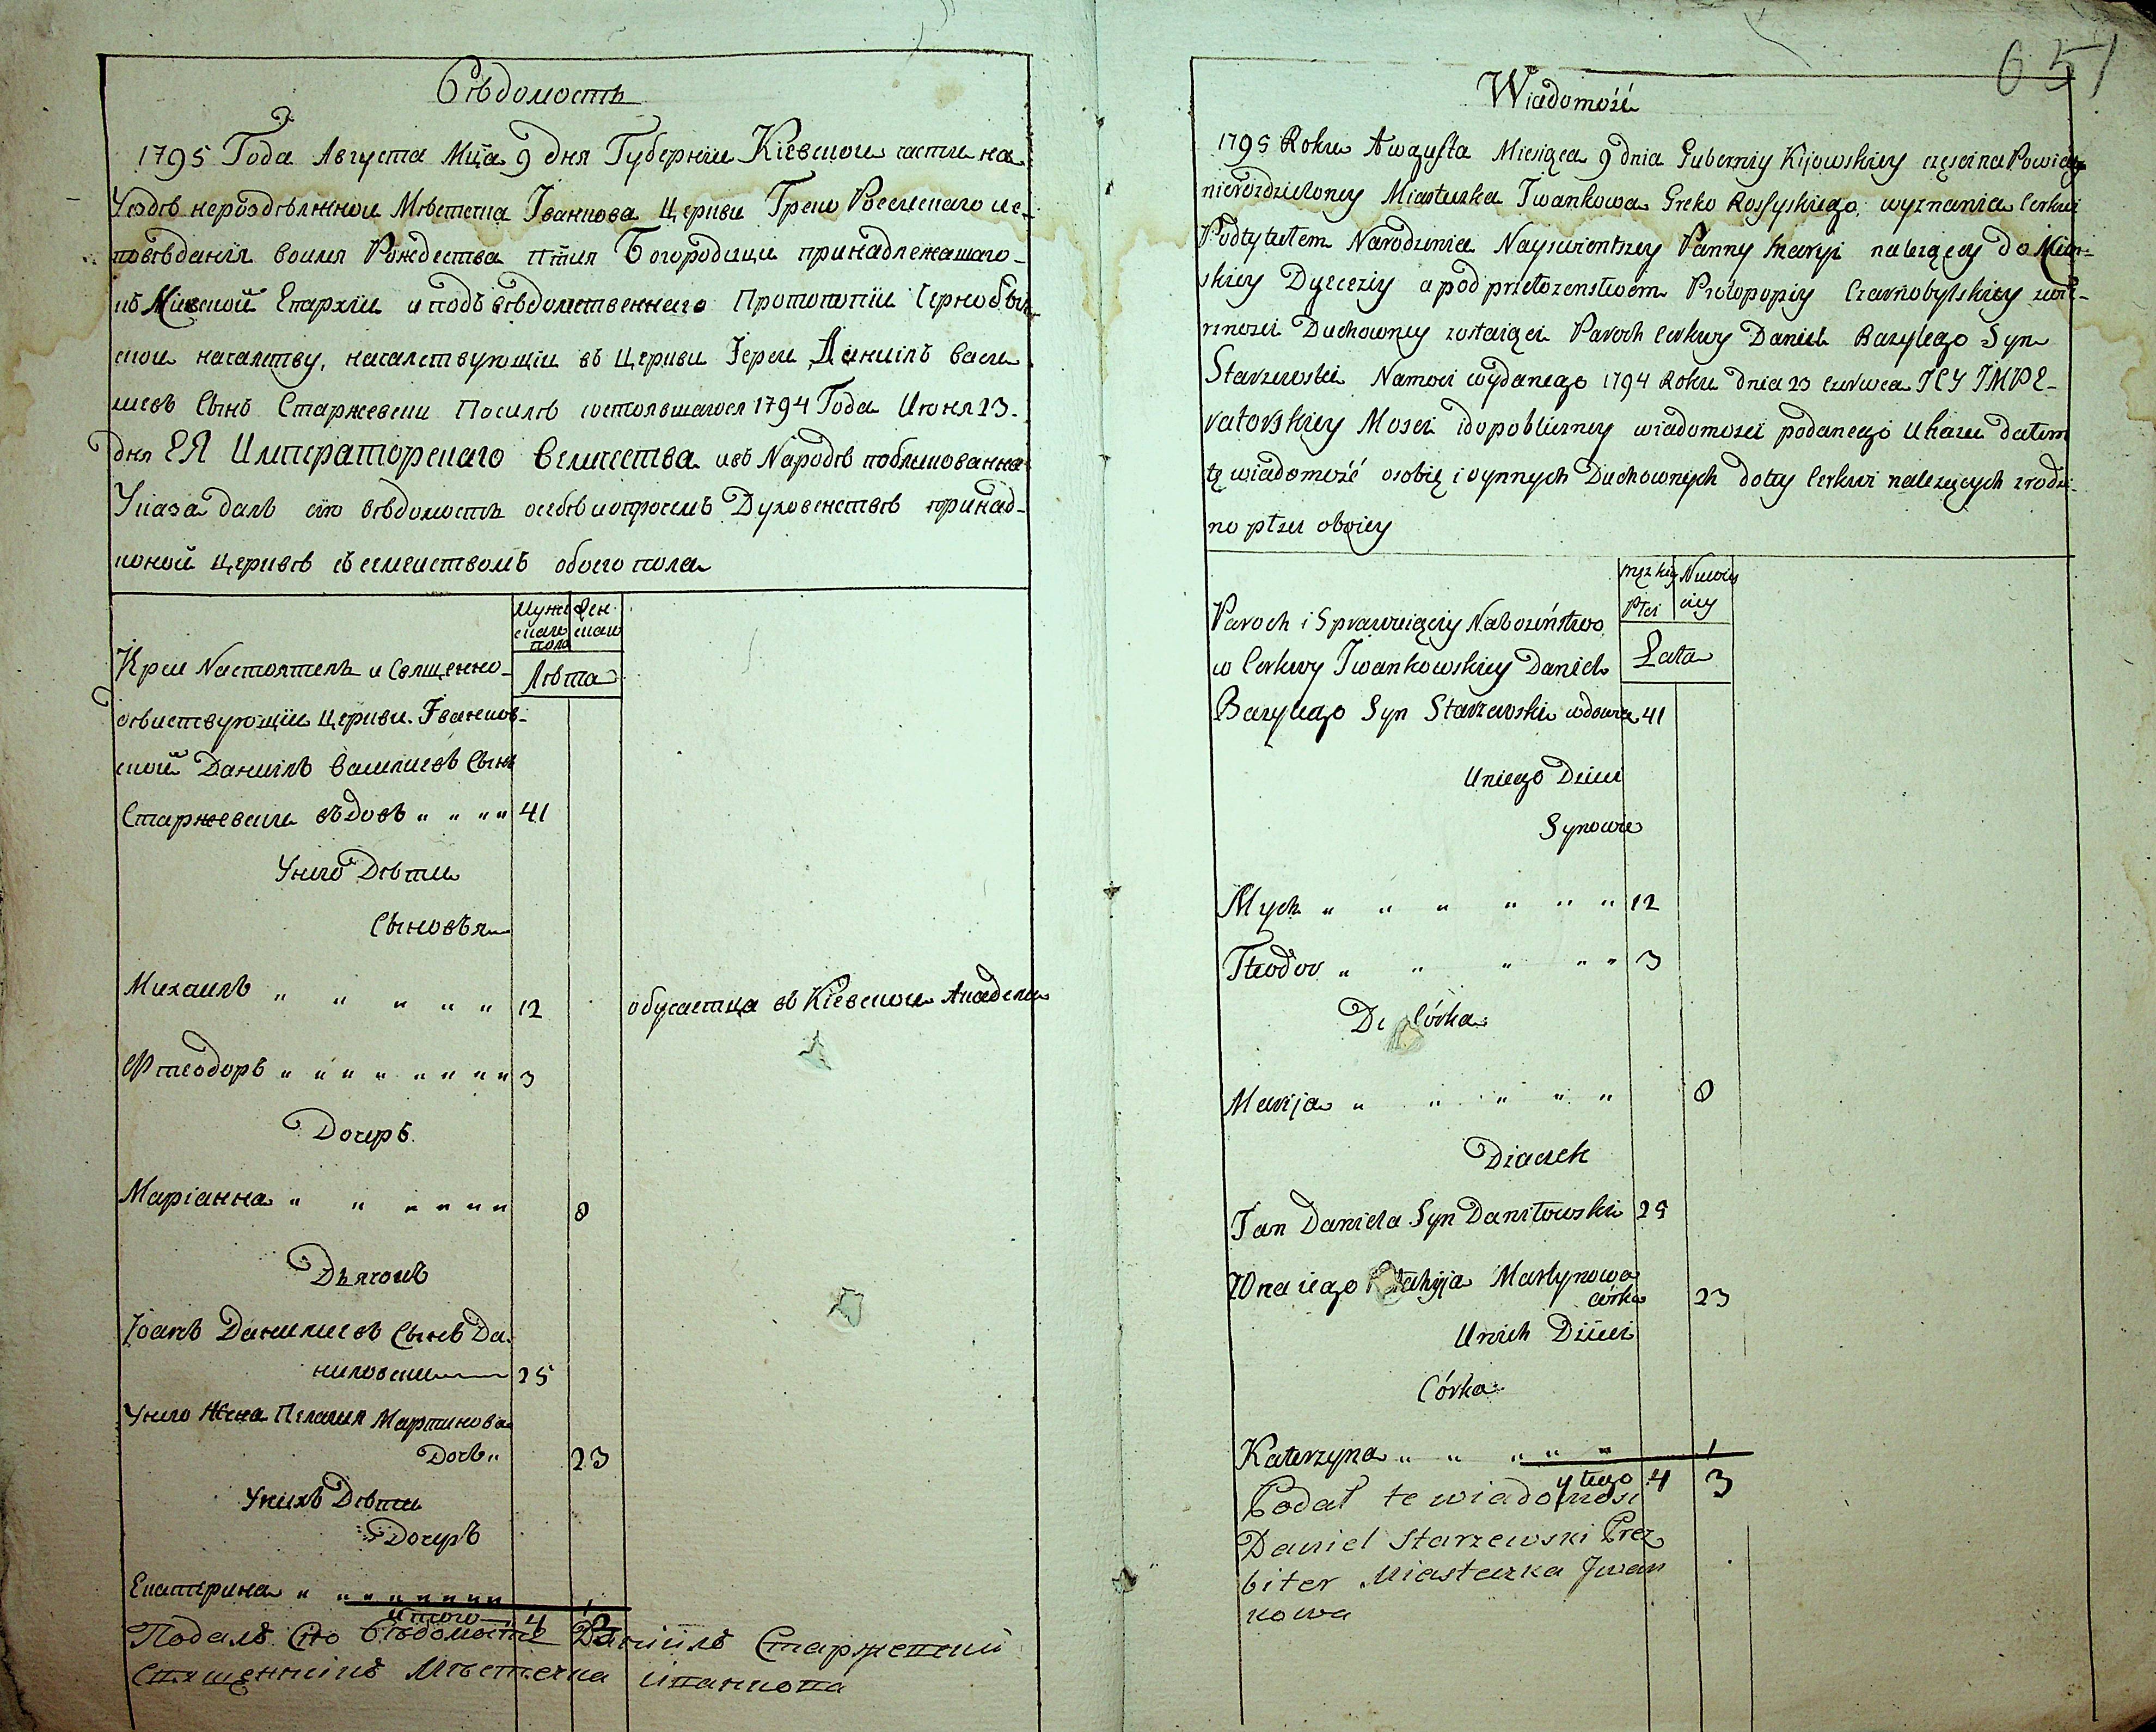 Вѣдомость
1795 Года Августа Мца 9 дня Губернии Кіевской части на
Уездѣ нероздѣлжной Мѣстечка Іванкова Церкви Греко Россискаго ис-
повѣданія воимя Рождества птия Богородици принадлежашаго-
къ Киевской Епархіи и подъ вѣдомственнаго Протопопіи Чернобыл-
ской началству, началствующіи въ Церкви Іереи Даниілъ Васи
лиевъ Сынъ Старжевски Посилѣ состоявшагося 1794 Года Июня 23-
дня ЕЯ Императорскаго Величества ивъ Народѣ побликованна
Указа далъ сію вѣдомость осебѣ ипрочемъ Духовенствѣ принад-
коной Церквѣ съ семеиствомъ обоего пола
Муже
скаго
пола
Жен
скаго
Лѣта
Іереи Настоятель и Священно-
дѣиствующіи Церкви Іванков-
ской Даниілъ Василиевъ Сынъ
Старжевски въдовъ " " " " 41
Унего Дѣти
Сыновья
Михаилъ " " " " " 12 обучаетца въ Кіевской Академи
Фтеодоръ " " " " " " " " 3
Дочеръ
Маріанна " " " " " " 8
Дьячокъ
Іоанъ Данилиевъ Сынъ Да-
ниловски 25
Унего Жена Пелагия Мартинова
Дочь " 23
Унихъ Дѣти
Дочеръ
Екатерина " " " " " " " " 1
Итого 4 3
Подалъ Сію Вѣдомость Даниилъ Старжевский
Священникъ Мѣстечка Иванкова
651
Wiadomość
1795 Roku Awgusta Miesiąca 9 dnia Guberniy Kijowskiey części na Powiaty
nierozdzieloney Miasteczka Iwankowa Greko Rossyskiego wyznania Cerkwi
Podtytułem Narodzenia Nayswientszey Panny Maryi należącey do Kiiow-
skiey Dyeceziy a pod przełozenstwem Protopopiy Czarnobylskiey zwie-
rznosci Duchowney zostaiącei Paroch Cerkwy Daniel Bazylego Syn
Starzewski Namoci wydanego 1794 Roku dnia 23 czerwca JEY IMPE-
ratorskiey Mosci idopobliczney wiadomosci podanego Ukazu datem
tę wiadomość osobię i oynnych Duchownych dotey Cerkwi należących zrodzi-
no płzei oboiey
Męzkiey
Płci
Niewie
ciey
Lata
Paroch i Sprawuiący Nabozeństwo
w Cerkwy Iwankowskiey Daniel
Bazylego Syn Starzewski wdowiec 41
Uniego Dzieci
Synowie
Mych " " " " " " 12
Fteodor " " " " " 3
Córka
Marija " " " " " 8
Diaczek
Jan Daniela Syn Daniłowski 25
Żona iego Martynowa
córka 23
Unich Dzieci
Córka
Katerzyna " " " " " 1
ytego 4 3
Podał te wiadomosc
Daniel Starzewski Prez
biter Miasteczka Jwan
kowa